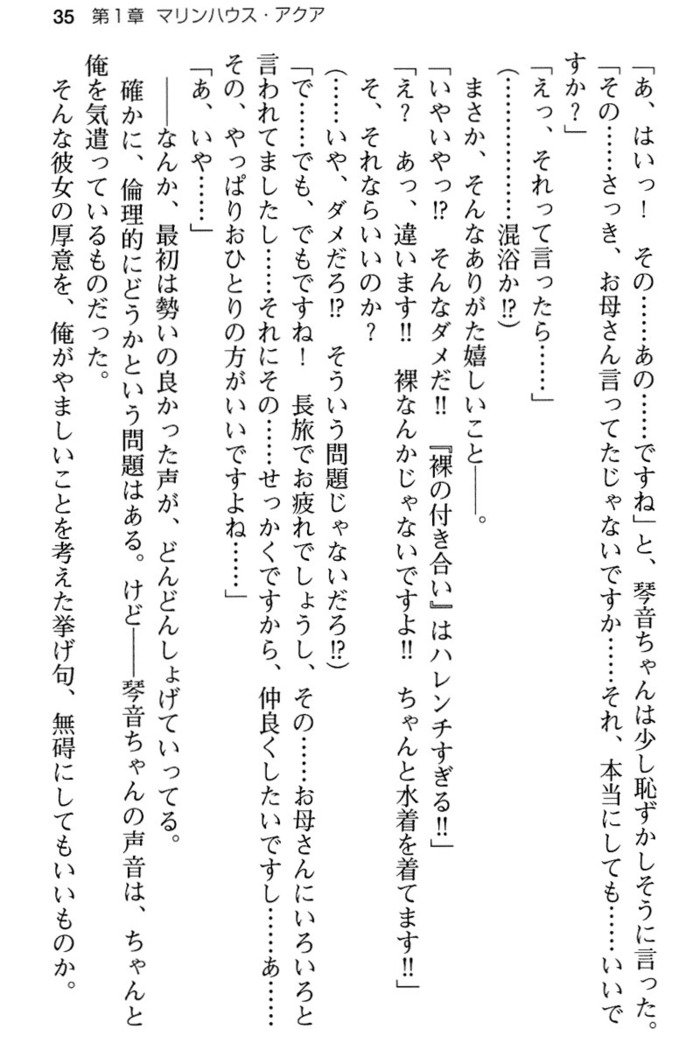 35 第1章 マリンハウス・アクア
「あ、はいっ！　その……あの……ですね」と、琴音ちゃんは少し恥ずかしそうに言った。
「その……さっき、お母さん言ってたじゃないですか……それ、本当にしても……いいで
すか？」
「えっ、それって言ったら……」
（……………混浴か!?）
まさか、そんなありがた嬉しいこと――。
「いやいやっ!?　そんなダメだ!!　『裸の付き合い』はハレンチすぎる!!」
「え？　あっ、違います!!　裸なんかじゃないですよ!!　ちゃんと水着を着てます!!」
そ、それならいいのか？
（……いや、ダメだろ!?　そういう問題じゃないだろ!?）
「で……でも、でもですね！　長旅でお疲れでしょうし、その……お母さんにいろいろと
言われてましたし……それにその……せっかくですから、仲良くしたいですし……あ……
その、やっぱりおひとりの方がいいですよね……」
「あ、いや……」
――なんか、最初は勢いの良かった声が、どんどんしょげていってる。
確かに、倫理的にどうかという問題はある。けど――琴音ちゃんの声音は、ちゃんと
俺を気遣っているものだった。
そんな彼女の厚意を、俺がやましいことを考えた挙げ句、無碍にしてもいいものか。